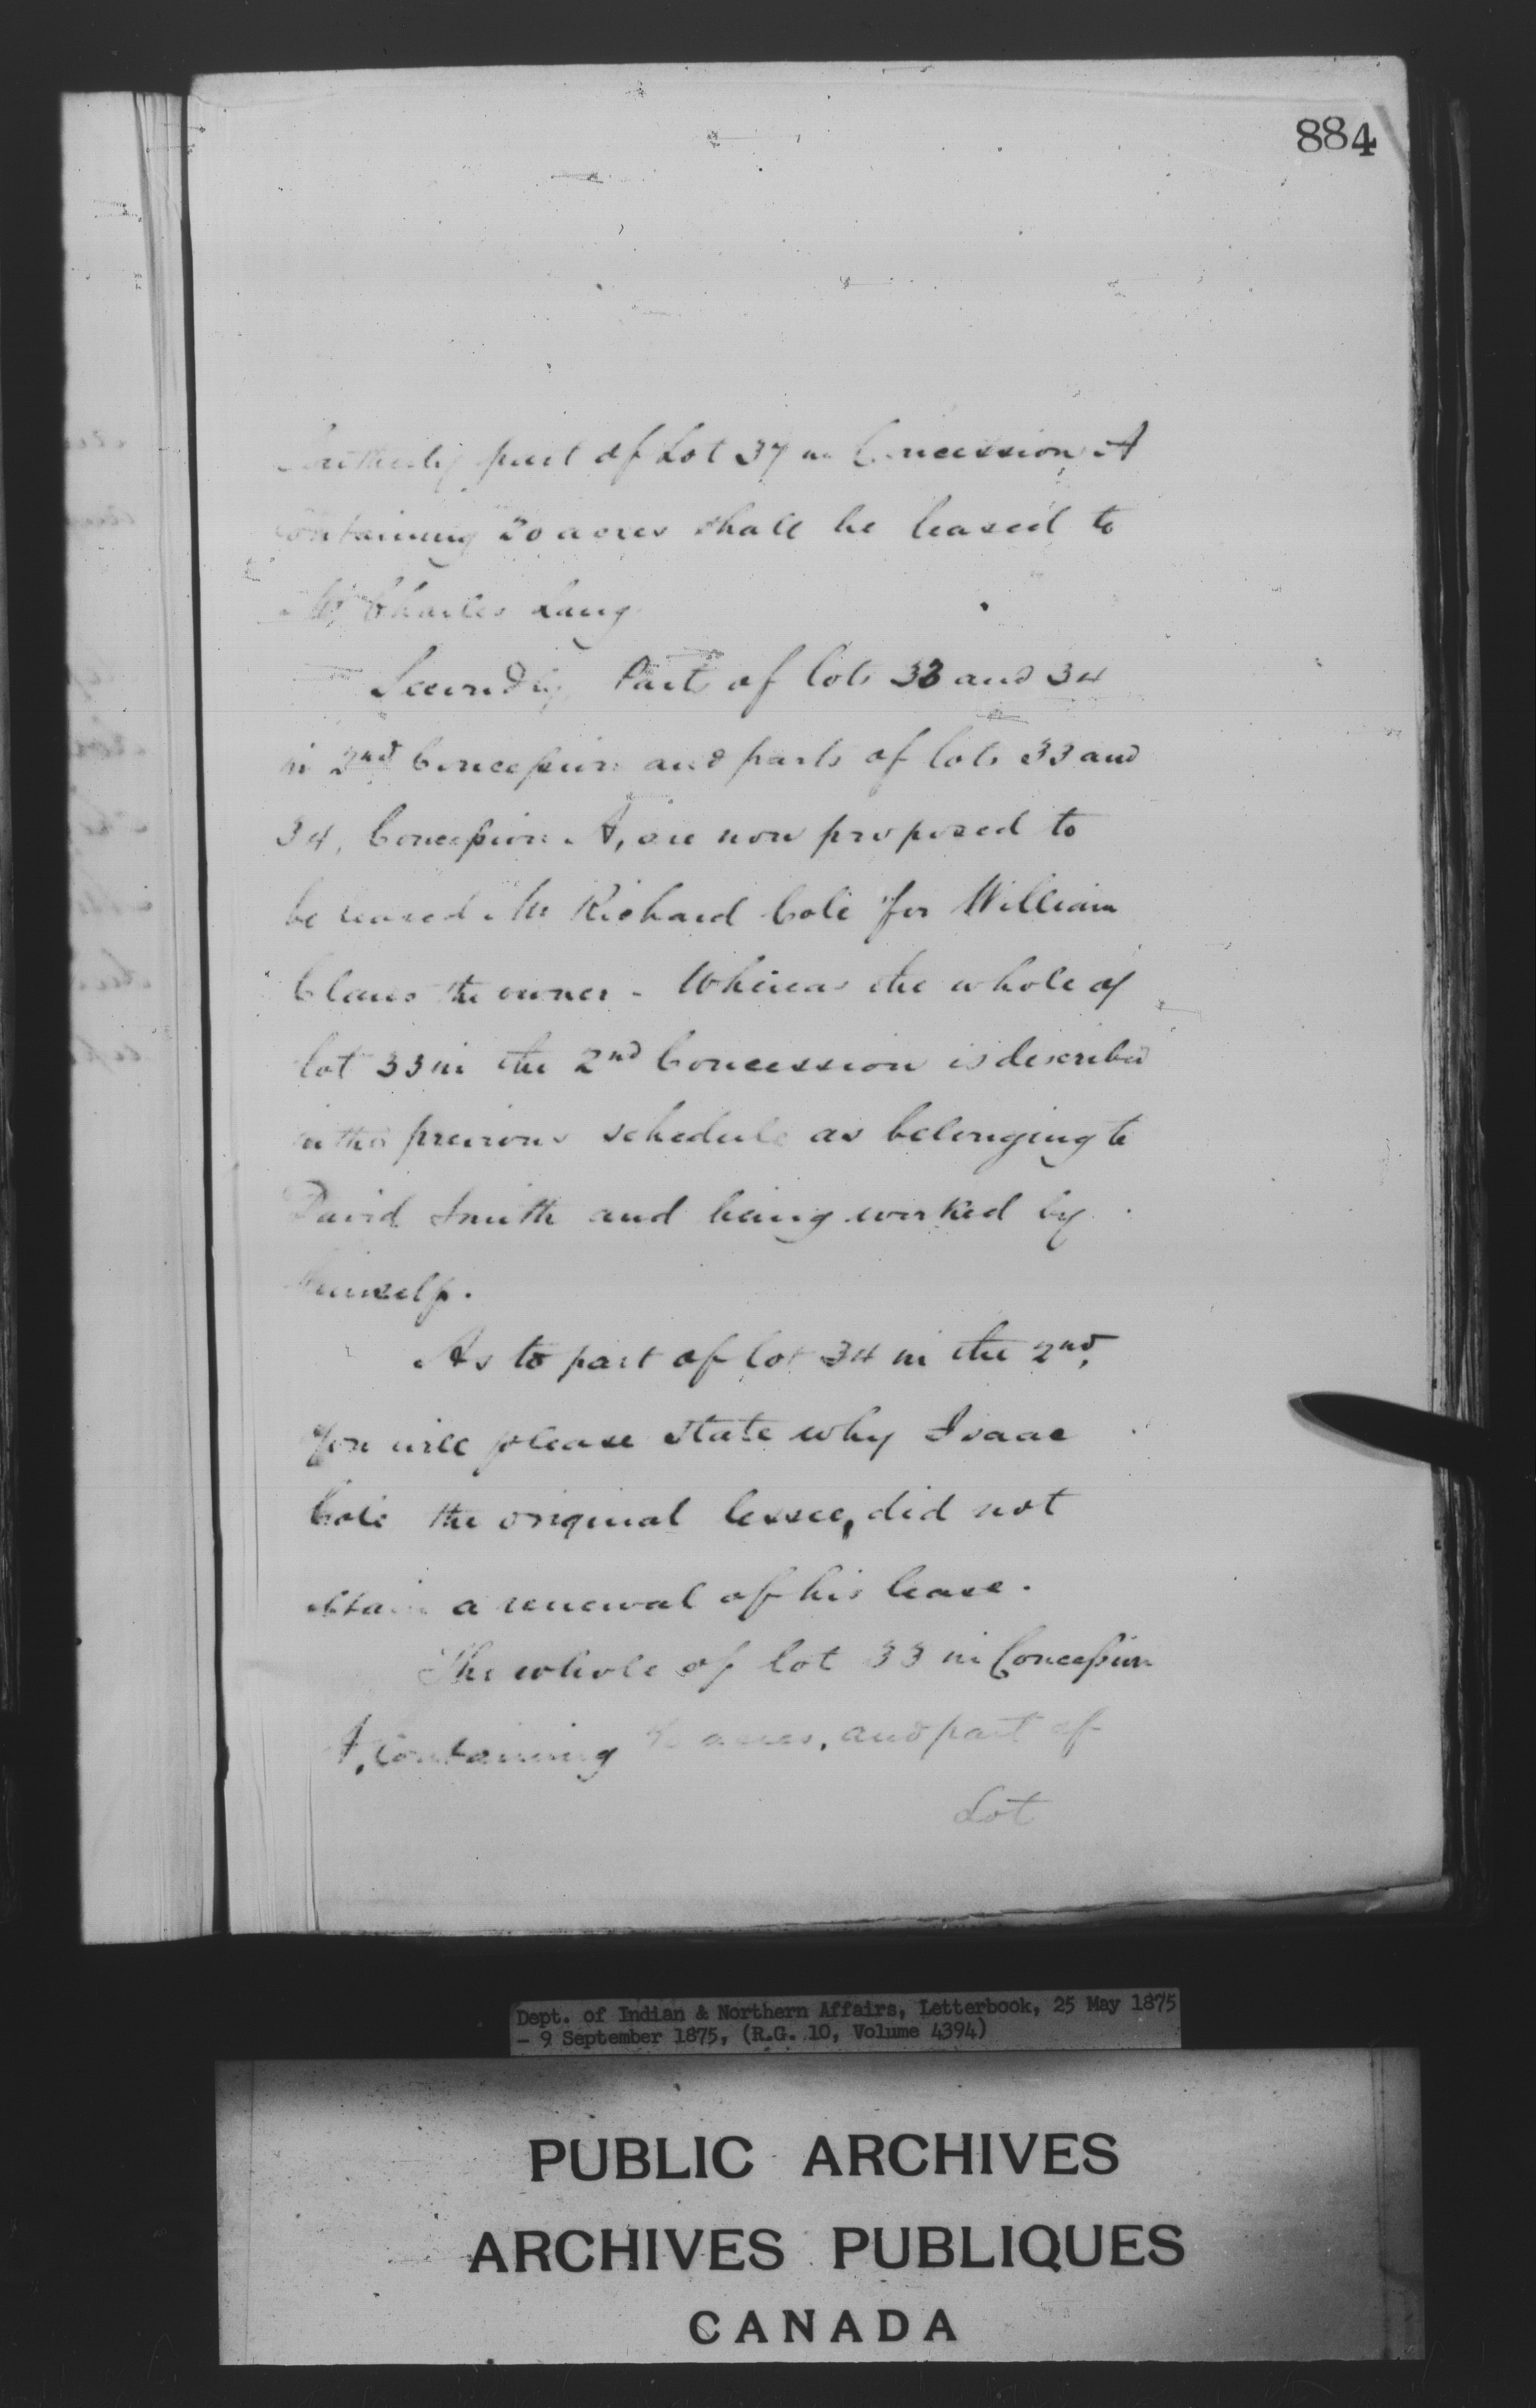 884
part of Lot 37 in Concession A
containing 20 acres shall be leased to
Mr Charles Lang
Secondly Parts of lots 33 and 34
in 2nd Concession and parts of lots 33 and
34, Concession A, are now proposed to
be leased Mr Richard Cole for William
Claus the owner - Whereas the whole of
lot 33 in the 2nd Concession is described
in the previous schedule as belonging to
David Smith and being worked by
himself.
As to part of lot 34 in the 2nd,
You will please state why Isaac
Cole the original lessee, did not
obtain a renewal of his lease.
The whole of lot 33 in Concession
A, Containing acres, and part of
Lot
Dept. of Indian & Northern Affairs, Letterbook, 25 May 1875
- 9 September 1875, (R.G. 10, Volume 4394)
PUBLIC ARCHIVES
ARCHIVES PUBLIQUES
CANADA